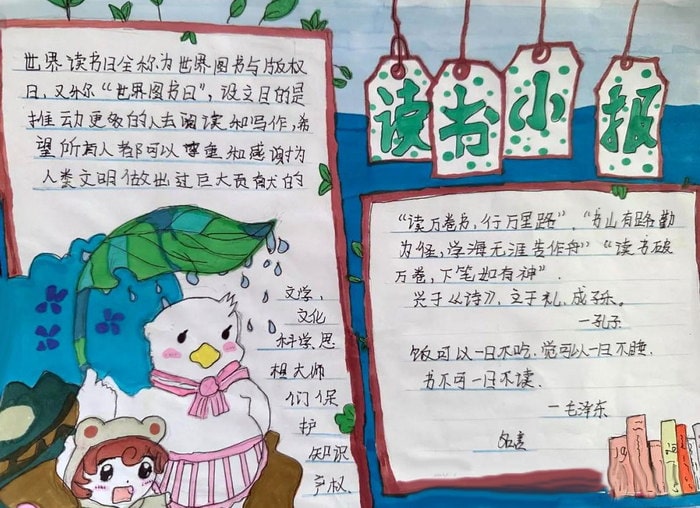 读书小报
世界读书日全称为世界图书与版权
日,又称“世界图书日”,设立目的是
推动更多的人去阅读和写作,希
望所有人都可以尊重和感谢为
人类文明做出过巨大贡献的
文学、
文化
科学、思
想大师
们保
护
知识
产权.
“读万卷书,行万里路”.“书山有路勤
为径,学海无涯苦作舟”“读书破
万卷,下笔如有神”.
兴于《诗》,立于礼,成于乐。
—孔子
饭可以一日不吃,觉可以一日不睡.
书不可一日不读.
—毛泽东